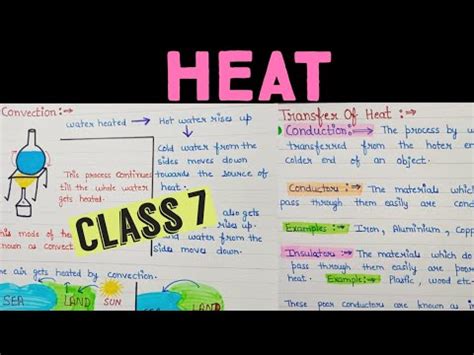 HEAT
Convection:→
water heated → Hot water rises up
Cold water from the
sides moves down
towards the source of
heat.
This process continues
till the whole water
gets heated.
CLASS 7
also gets
rises up
water from the
sides moves down.
This mode of
known as convect
air gets heated by convection.
SEA LAND SUN
SEA LAND
Transfer Of Heat:→
Conduction:→ The process by
transferred from the hoter en
colder end of an object.
Conductors:→ The materials which
pass through them easily are cond
Examples:→ Iron, Aluminium, Copp
Insulators:→ The materials which do
pass through them easily are poor
heat. Example:→ Plastic, wood etc.
These poor conductors are known as i